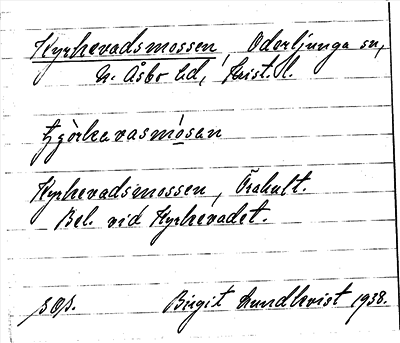 Kyrkevadsmossen, Oderljunga sn,
N. Åsbo hd, Krist. l.
tjỳrkavasmósan
Kyrkevadsmossen, Örahult.
Bel. vid Kyrkevadet.
Birgit Lundkvist 1938.